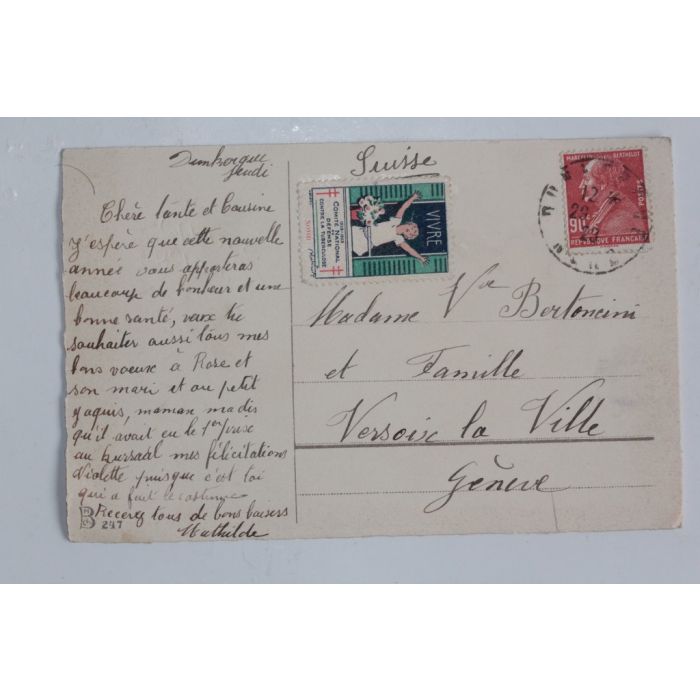 Dunkerque
Jeudi
Chère tante et Cousine
J'espère que cette nouvelle
année vous apporteras
beaucoup de bonheur et une
bonne santé, veux tu
souhaiter aussi tous mes
bons voeux à Rose et
son mari et au petit
Jaquis, maman m'a dis
qu'il avait eu le 1er prise
au kursaal mes félicitations
Violette puisque c'est toi
qui a fait le costume
Recevez tous de bons baisers
Mathilde
B 247
Suisse
VIVRE
COMITÉ NATIONAL
DE
DÉFENSE
CONTRE LA TUBERCULOSE
MARCELIN BERTHELOT
POSTES
90c
REPUBLIQUE FRANÇAISE
12
Madame Vve Bertoncini
et Famille
Versoix la Ville
Genève